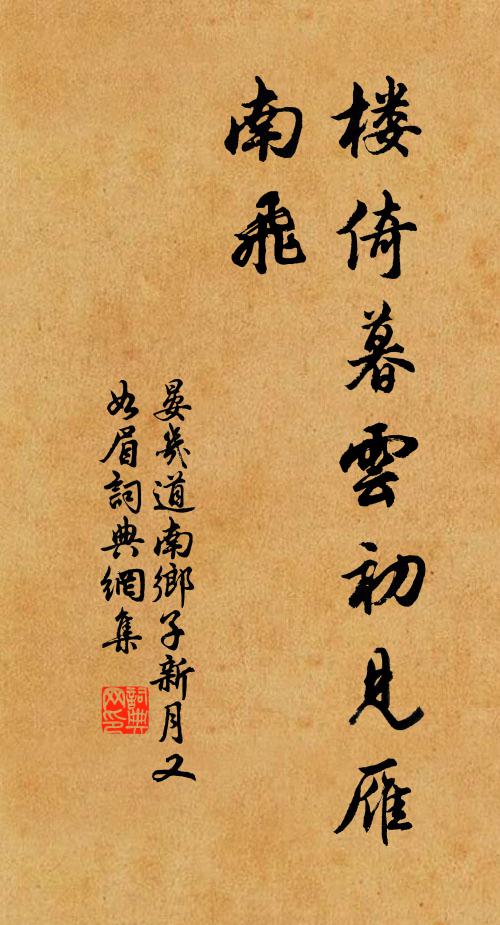 楼倚暮雲初見雁
南飛
晏幾道南鄉子新月又
如眉詞典網集
詞典网印